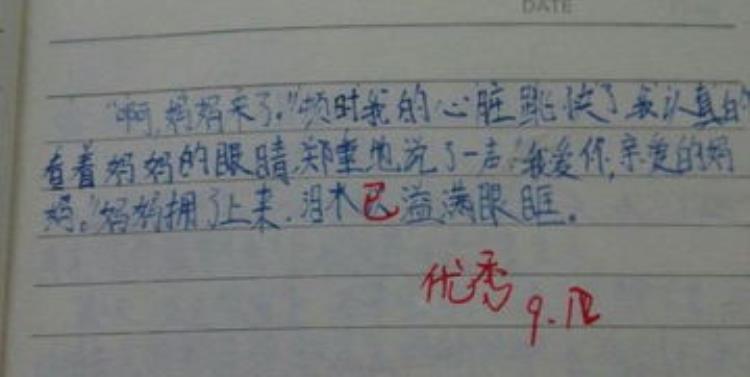 DATE
"啊,妈妈来了。"顿时我的心脏跳快了我认真的
看着妈妈的眼睛,郑重地说了一声"我爱你,亲爱的妈
妈。"妈妈拥了上来,泪水已溢满眼眶。
优秀
9.12